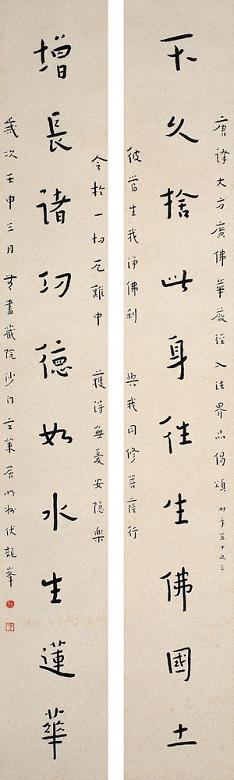 唐譯大方廣佛華嚴經入法界品偈頌 時年五十又三
不久捨此身往生佛國土
彼當生我淨佛刹 與我同修菩薩行
令於一切厄難中 獲得無憂安隱樂
增長諸功德如水生蓮華
歲次壬申三月 無盡藏院沙門亡言集居明州伏龍峯